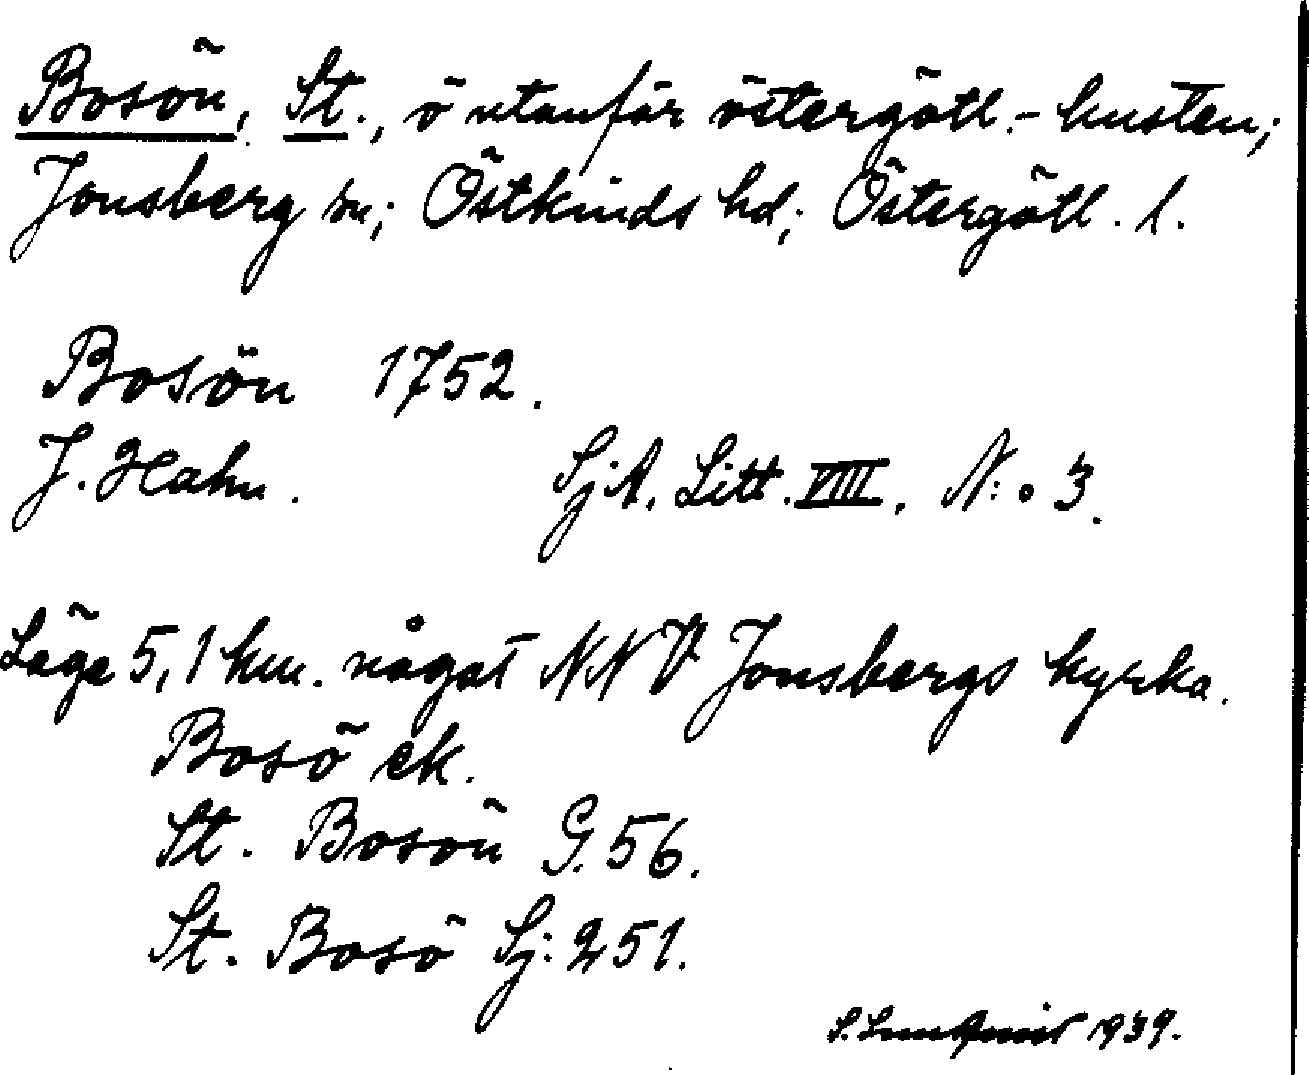 Bosön, St., ö utanför östergötl.-kusten;
Jonsberg sn; Östkinds hd; Östergötl. l.
Bosön 1752.
J. Hahn. SjA. Litt. VIIII. N:o 3.
Läge 5,1 km. något NNV Jonsbergs kyrka.
Bosö ek.
St. Bosön G. 56.
St. Bosö Sj: 251.
S. Lundqvist 1939.